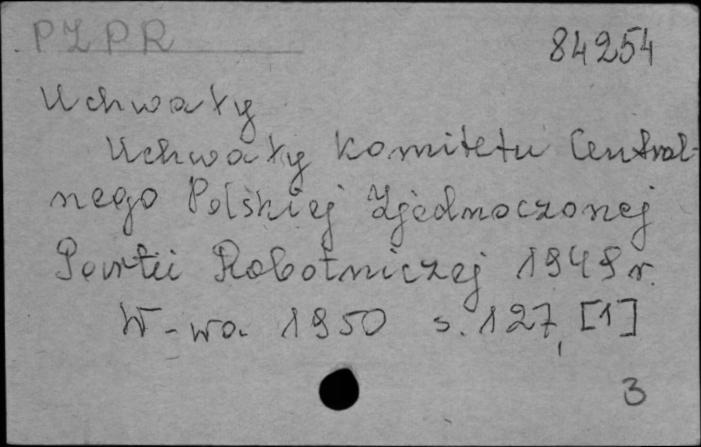 PZPR
84254
Uchwały
Uchwały Komitetu Central-
nego Polskiej Zjednoczonej
Partii Robotniczej 1949 r.
W-wa 1950 s. 127, [1]
3